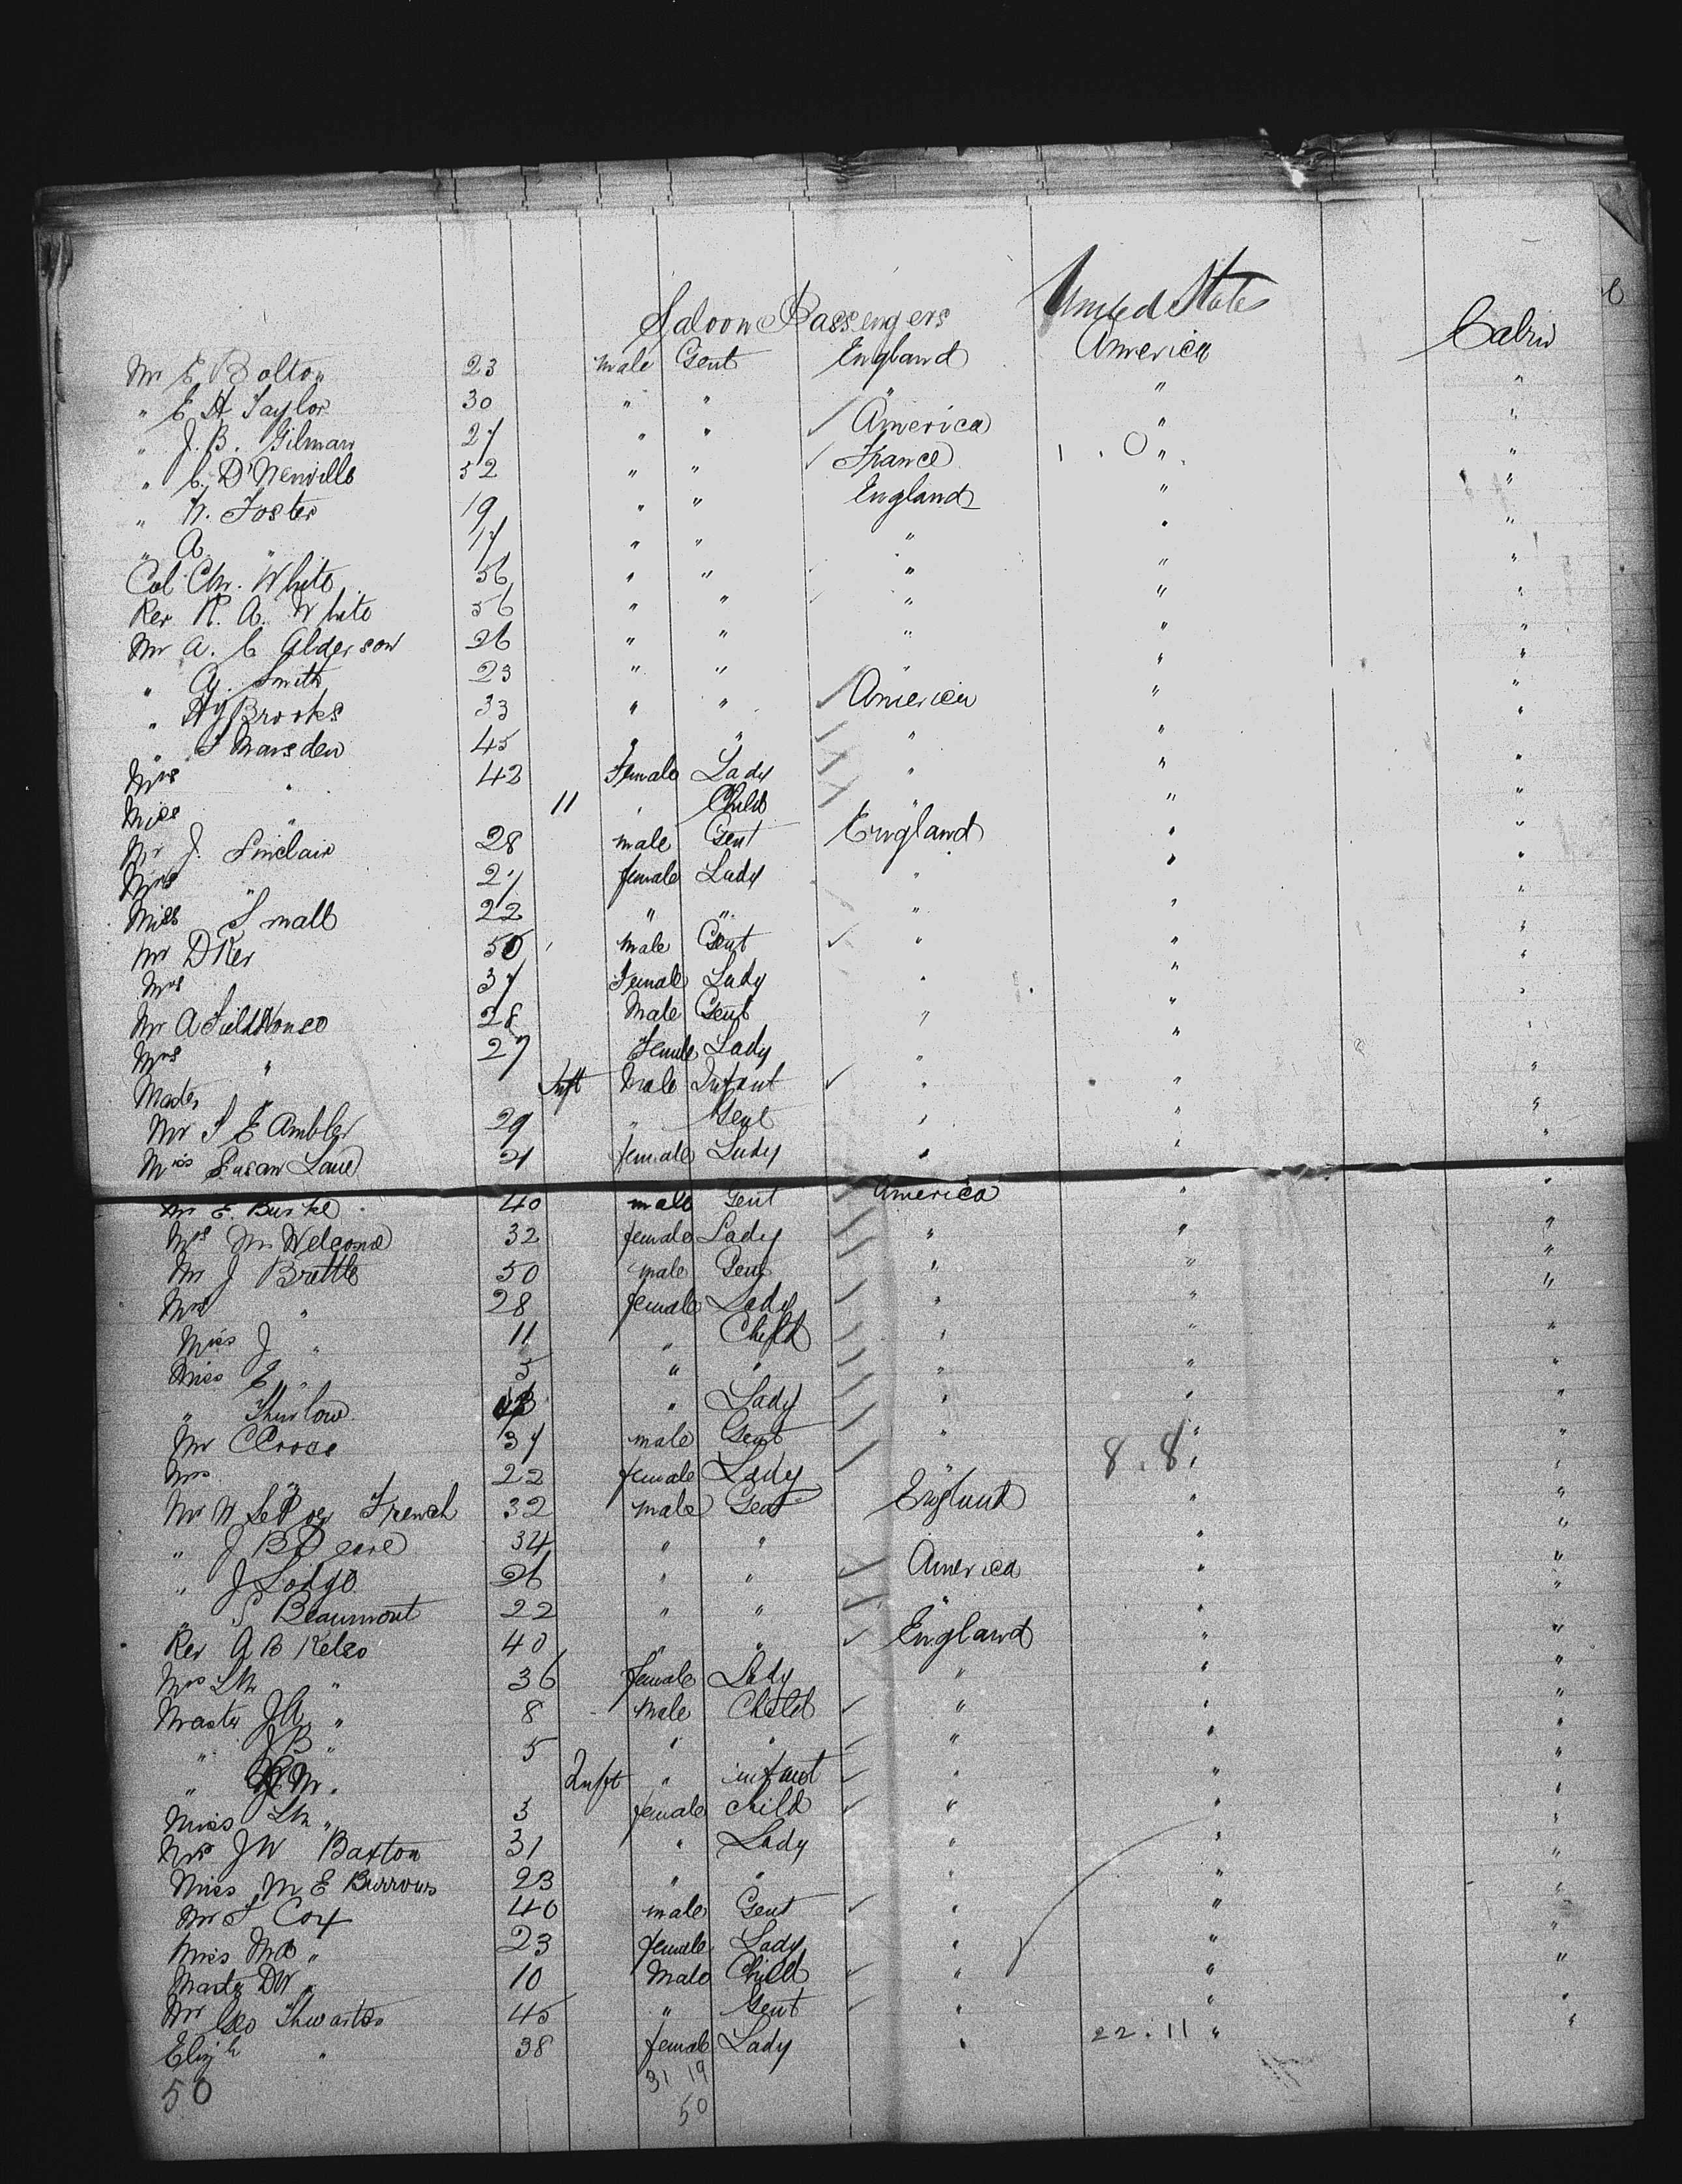 Saloon Passengers United States
Mr E Bolton 23 male Gent England America Cabin
" E H Taylor 30 " " " " "
" J. B. Gilman 27 " " America " "
" C. D' 52 " " France 1 . 0 " "
" W. Foster 19 " " England " "
" A " 17 " " " " "
Col Chr. White 56 " " " " "
Rev R. A. White 56 " " " " "
Mr A. C Alderson 26 " " " " "
" A. Smith 23 " " " " "
" Hy Brooks 33 " " America " "
" S Marsden 45 " " " " "
Mrs " 42 Female Lady " " "
Miss " 11 " Child " " "
Mr J. Sinclair 28 male Gent England " "
Mrs " 27 female Lady " " "
Miss Small 22 " " " " "
Mr D Ker 50 Male Gent " " "
Mrs 37 Female Lady " " "
Mr A Fieldhouse 28 Male Gent " " "
Mrs " 27 Female Lady " " "
Master " Inft Male Infant " " "
Mr S E Ambler 29 " Gent " " "
Miss Susan Lane 21 female Lady " " "
Mr E. Burke 40 male Gent America " "
Mrs M Welcome 32 female Lady " " "
Mr J Brettle 50 male Gent " " "
Mrs " 28 female Lady " " "
Miss J " 11 " Child " " "
Miss E " 5 " " " " "
" Thurlow " Lady " " "
Mr C Cross 37 male Gent " 8 . 8 " "
Mrs " 22 female Lady " " "
Mr W Le Poer French 32 male Gent England " "
" J B 34 " " " "
" J Lodge 26 " " America " "
" S Beaumont 22 " " " " "
Rev A B Kelso 40 " " England " "
Mrs L M " 36 female Lady " " "
Master J A " 8 Male Child " " "
" J B " 5 " " " " "
" M " Inft " infant " " "
Miss L M " 3 female child " " "
Mrs J W Baxton 31 " Lady " " "
Miss M E Burrows 23 " " " " "
Mr S Cox 40 male Gent " " "
Miss M A " 23 female Lady " " "
Master D W " 10 Male Child " " "
Mr Geo Thwaites 45 " Gent " " "
Elizh " 38 female Lady " 22 . 11 " "
50 31 19
50